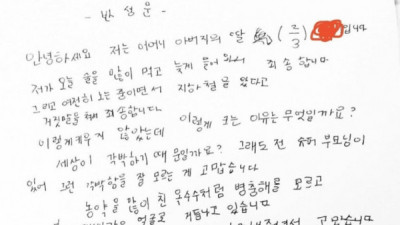 - 반성문 -
안녕하세요 저는 어머니 아버지의 딸 (2/3) 입니다
저가 오늘 술을 많이 먹고 늦게 들어와서 죄송합니다
그리고 여전히 노는 중이면서 지하철을 탔다고
거짓말을 해 죄송합니다
이렇게 키우지 않았는데 이렇게 크는 이유는 무엇일까요?
세상이 각박하기 때문일까요? 그래도 전 슈퍼 부모님이
있어 그런 각박함을 잘 모르는 게 고맙습니다
농약을 많이 친 옥수수처럼 병충해를 모르고
얼굴로 거듭나고 있습니다
고맙습니다